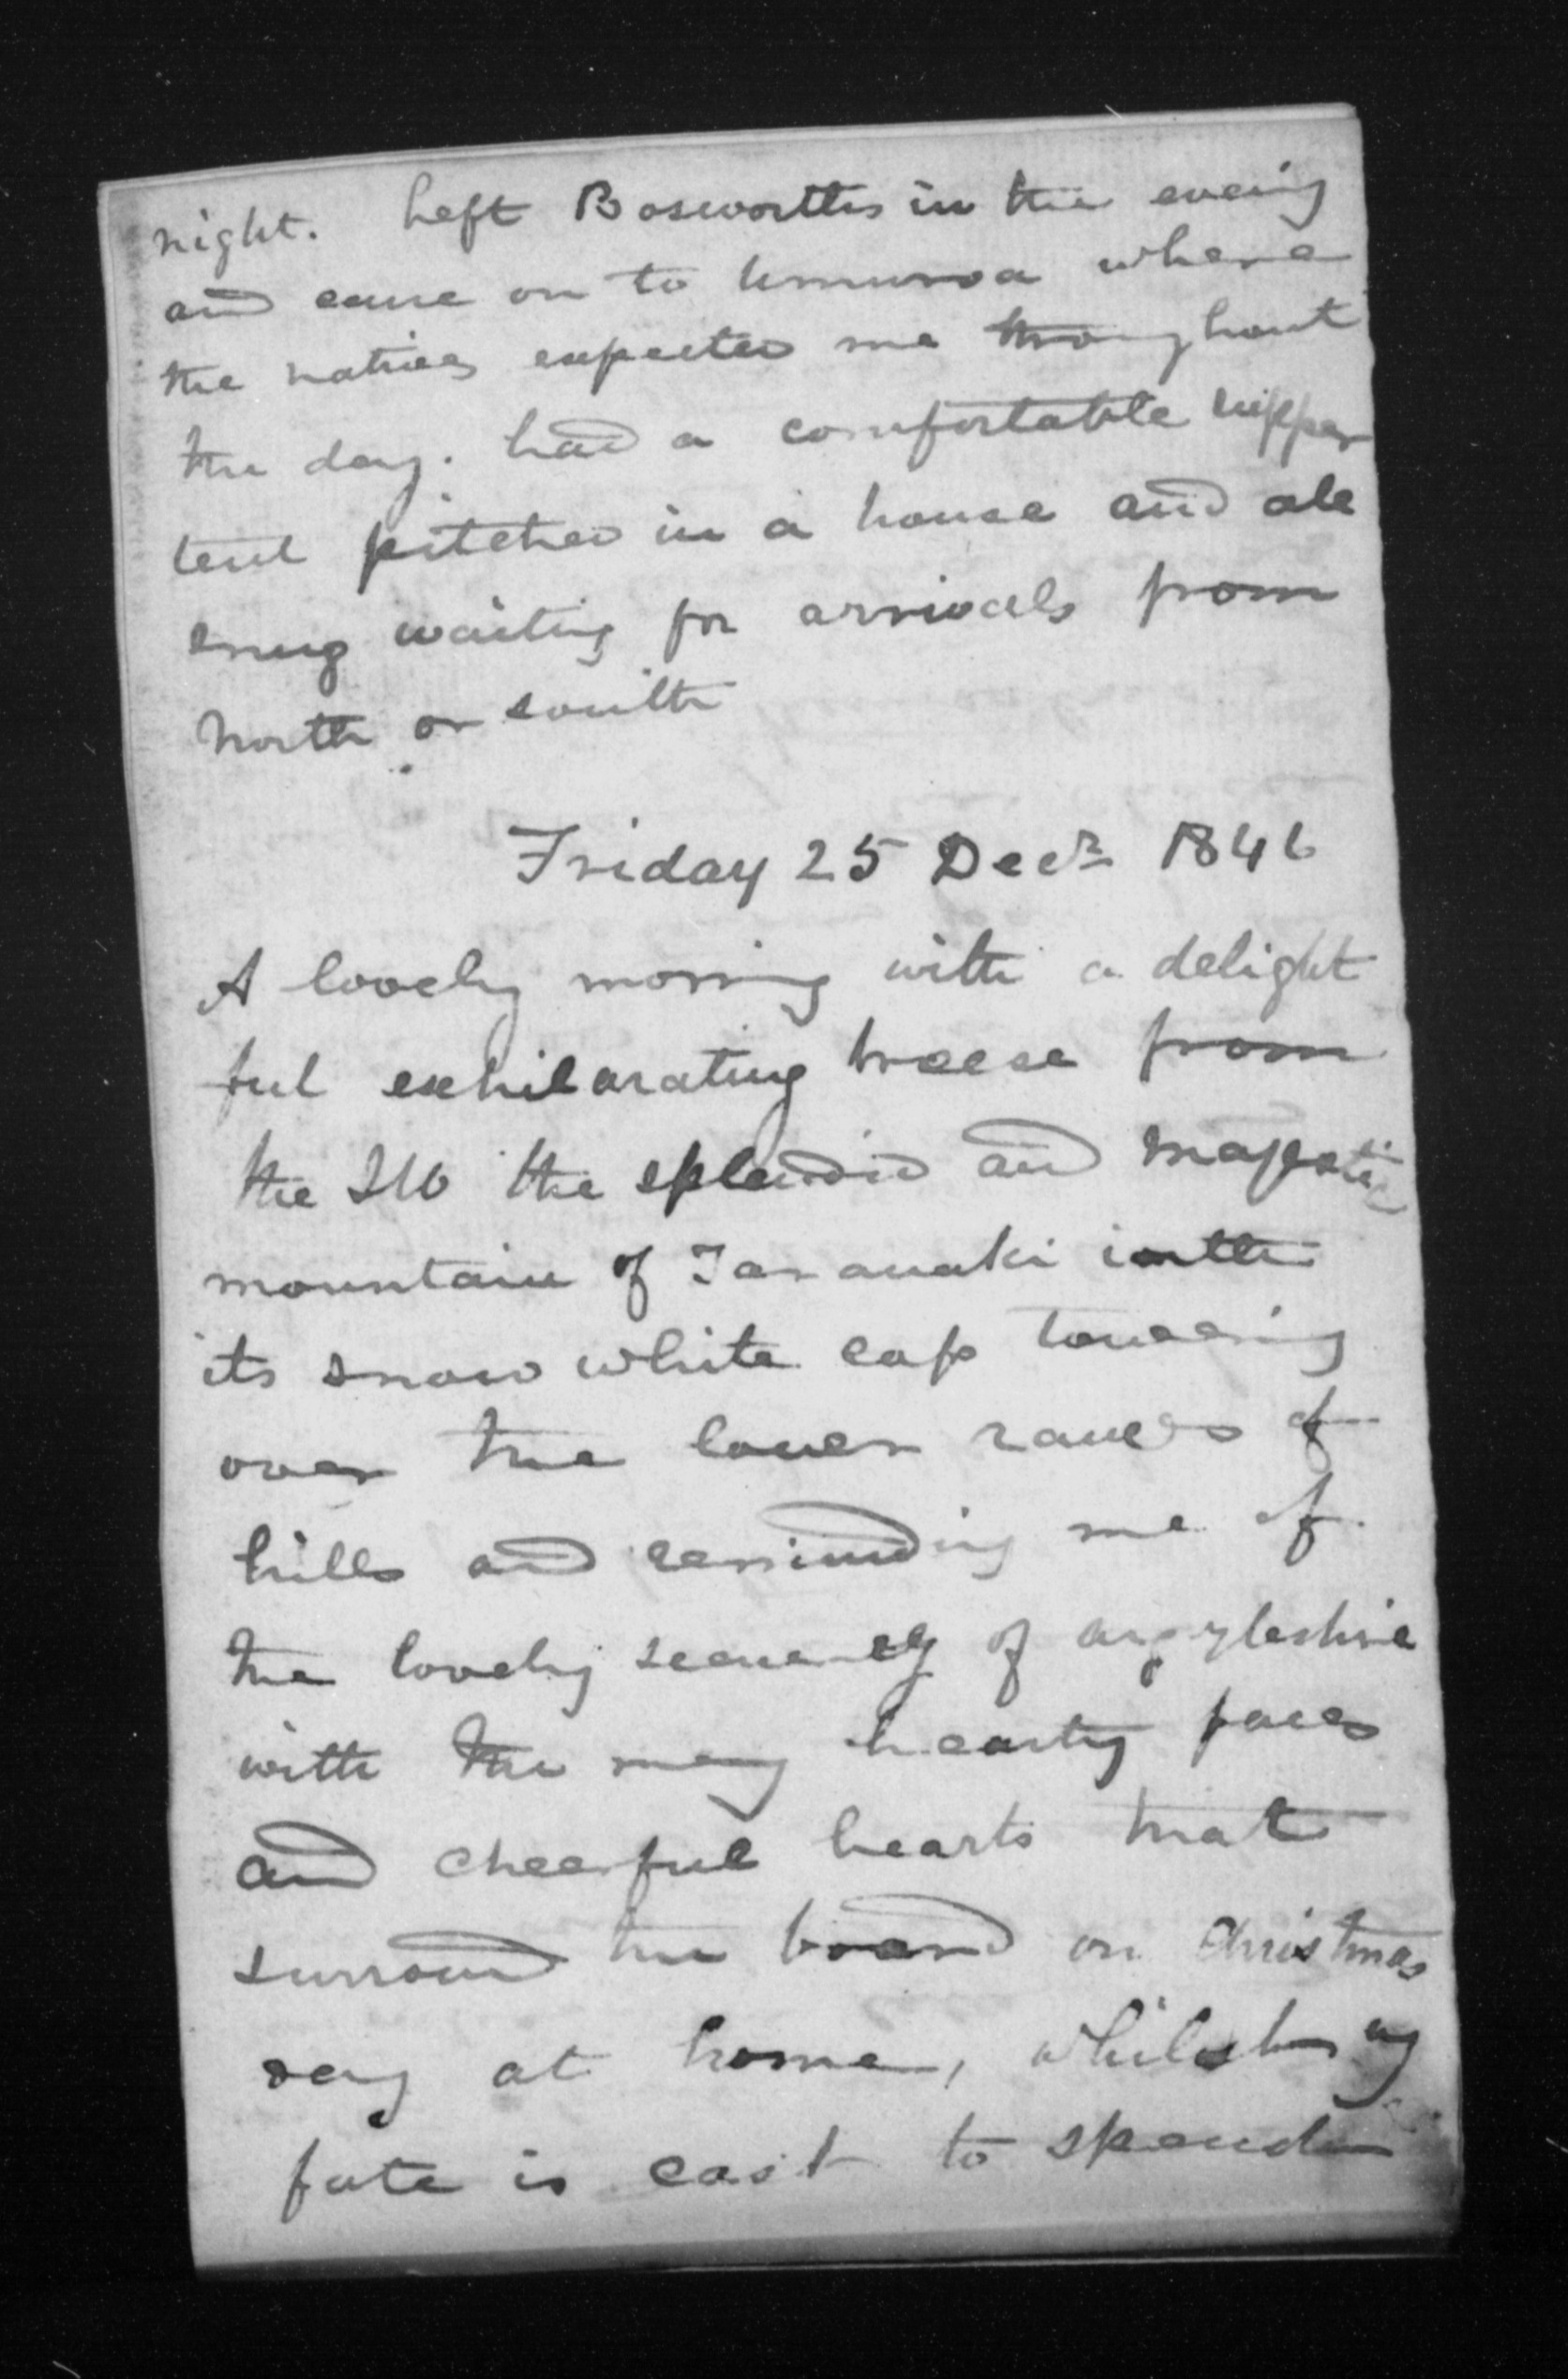 night. Left Bosworths in the evening
and came on to Umuroa where
the natives expected me throughout
the day. had a comfortable supper
tent pitched in a house and all
snug waiting for arrivals from
North or South
Friday 25 Decr 1846
A lovely morning with a delight
ful exhilarating breese from
the SW the splendid and majestic
mountain of Taranaki with
its snow white cap towering
over the lower ranges of
hills and reminding me of
the lovely scenery of argyleshire
with the many hearty faces
and cheerful hearts that
surround the board on Christmas
day at home, whilst my
fate is cast to spend